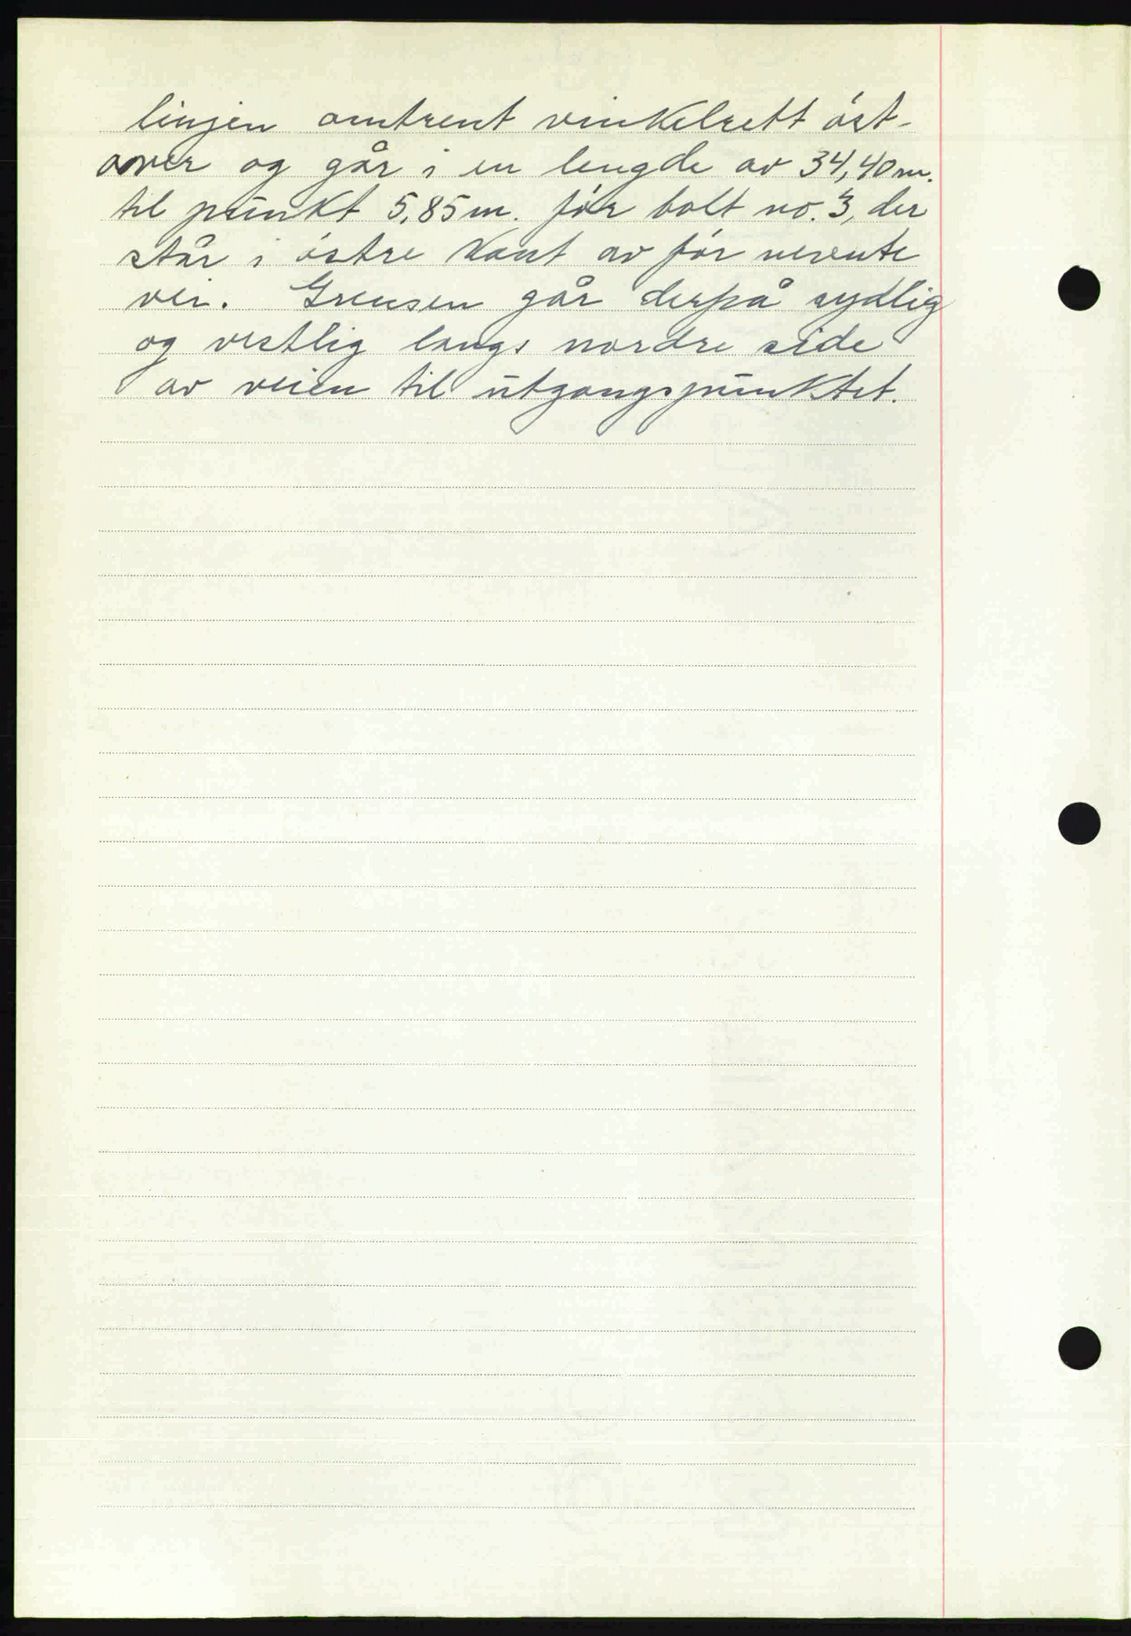 linjen omtrent vinkelrett øst-
over og går i en lengde av 34,40 m.
til punkt 5,85 m. før bolt no. 3, der
står i østre kant av før nevnte
vei. Grensen går derpå sydlig
og vestlig langs nordre side
av veien til utgangspunktet.